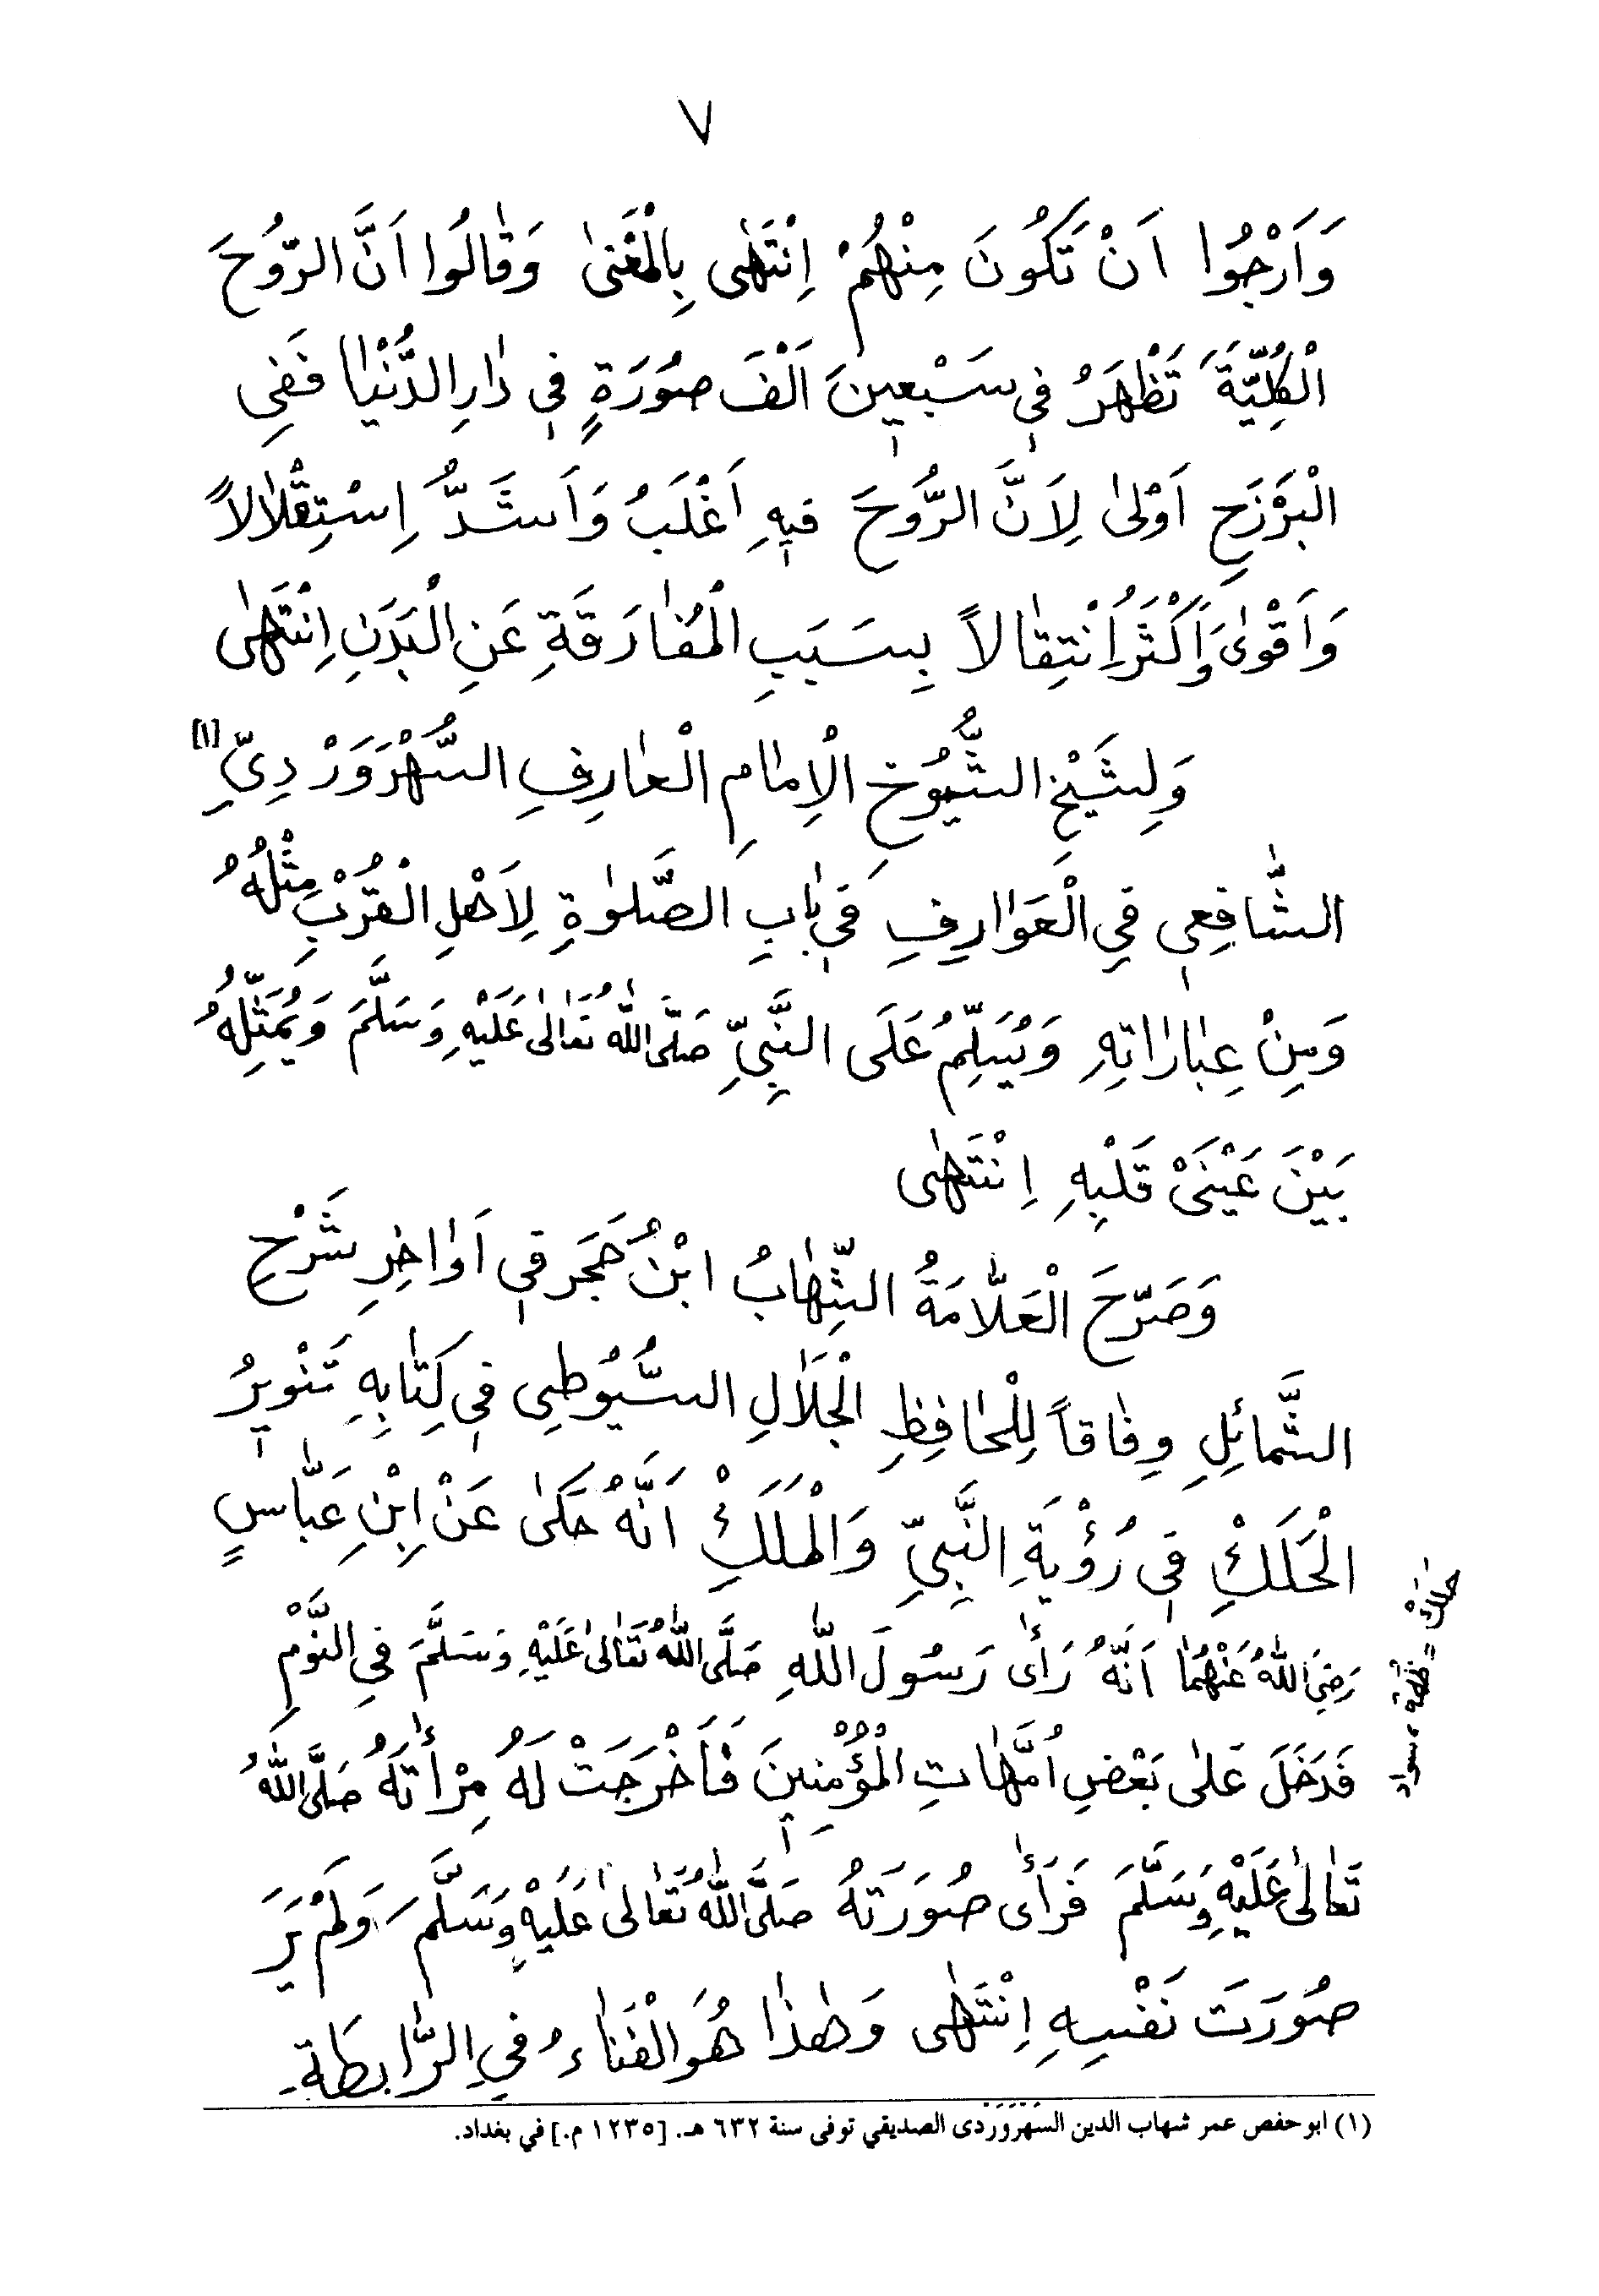 ٧
وَاَرْجُوا اَنْ تَكُونَ مِنْهُمْ اِنْتَهٰى بِالْمَعْنٰى وَقٰالُوا اَنَّ الرُّوحَ
الْكُلِّيَّةَ تَظْهَرُ فٖي سَبْعٖينَ اَلْفَ صُورَةٍ فٖي دٰارِ الدُّنْيٰا فَفِي
الْبَرْزَخِ اَوْلىٰ لِاَنَّ الرُّوحَ فٖيهِ اَغْلَبُ وَاَشَدُّ اِسْتِقْلٰالاً
وَاَقْوٰى وَاَكْثَرُ اِنْتِقٰالاً بِسَبَبِ الْمُفٰارَقَةِ عَنِ الْبَدَنِ اِنْتَهٰى
وَلِشَيْخِ الشُّيُوخِ الْاِمٰامِ الْعٰارِفِ السُّهْرَوَرْدِيِّ [١]
الشّٰافِعٖي فِي الْعَوٰارِفِ فٖي بٰابِ الصَّلٰوةِ لِاَهْلِ الْقُرْبِ مِثْلُهُ
وَمِنْ عِبٰارٰاتِهِ وَيُسَلِّمُ عَلَى النَّبِيِّ صَلَّى اللّٰهُ تَعٰالىٰ عَلَيْهِ وَسَلَّمَ وَيُمَثِّلُهُ
بَيْنَ عَيْنَىْ قَلْبِهِ اِنْتَهٰى
وَصَرَّحَ الْعَلّٰامَةُ الشِّهٰابُ ابْنُ حَجَر فٖي اَوٰاخِرِ شَرْحِ
الشَّمٰائِلِ وِفٰاقاً لِلْحٰافِظِ الْجَلٰالِ السُّيُوطِي فٖي كِتٰابِهِ تَنْوٖيرُ
الْحَلَكِ فٖي رُؤْيَةِ النَّبِيِّ وَالْمَلَكِ اَنَّهُ حَكٰى عَنْ اِبْنِ عَبّٰاسٍ
رَضِيَ اللّٰهُ عَنْهُمٰا اَنَّهُ رَأٰى رَسُولَ اللّٰهِ صَلَّى اللّٰهُ تَعٰالىٰ عَلَيْهِ وَسَلَّمَ فِي النَّوْمِ
فَدَخَلَ عَلىٰ بَعْضِ اُمَّهٰاتِ الْمُؤْمِنٖينَ فَاَخْرَجَتْ لَهُ مِرْأٰتَهُ صَلَّى اللّٰهُ
تَعٰالىٰ عَلَيْهِ وَسَلَّمَ فَرَأٰى صُورَتَهُ صَلَّى اللّٰهُ تَعٰالىٰ عَلَيْهِ وَسَلَّمَ وَلَمْ يَرَ
صُورَتَ نَفْسِهِ اِنْتَهٰى وَهٰذٰا هُوَ الْفَنٰاءُ فِي الرّٰابِطَةِ
حَلَكْ = ظلمة، سواد
(١) ابو حفص عمر شهاب الدين السَهْرَوَرْدى الصديقي توفى سنة ٦٣٢ هـ. [١٢٣٥ م.] في بغداد.